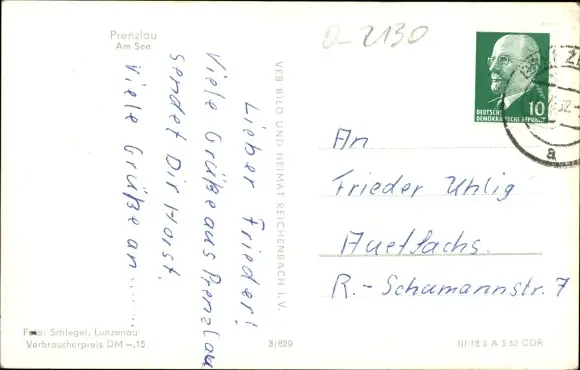 Prenzlau
Am See
Lieber Frieder!
Viele Grüße aus Prenzlau
sendet Dir Horst.
Viele Grüße an......
Foto: Schlegel, Lunzenau
Verbraucherpreis DM -,15
VEB BILD UND HEIMAT REICHENBACH I. V.
3/829
O-2130
DEUTSCHE
DEMOKRATISCHE REPUBLIK
10
a
An
Frieder Uhlig
Auerfachs.
R.-Schumannstr. 7
III 18 6 A 3 62 DDR